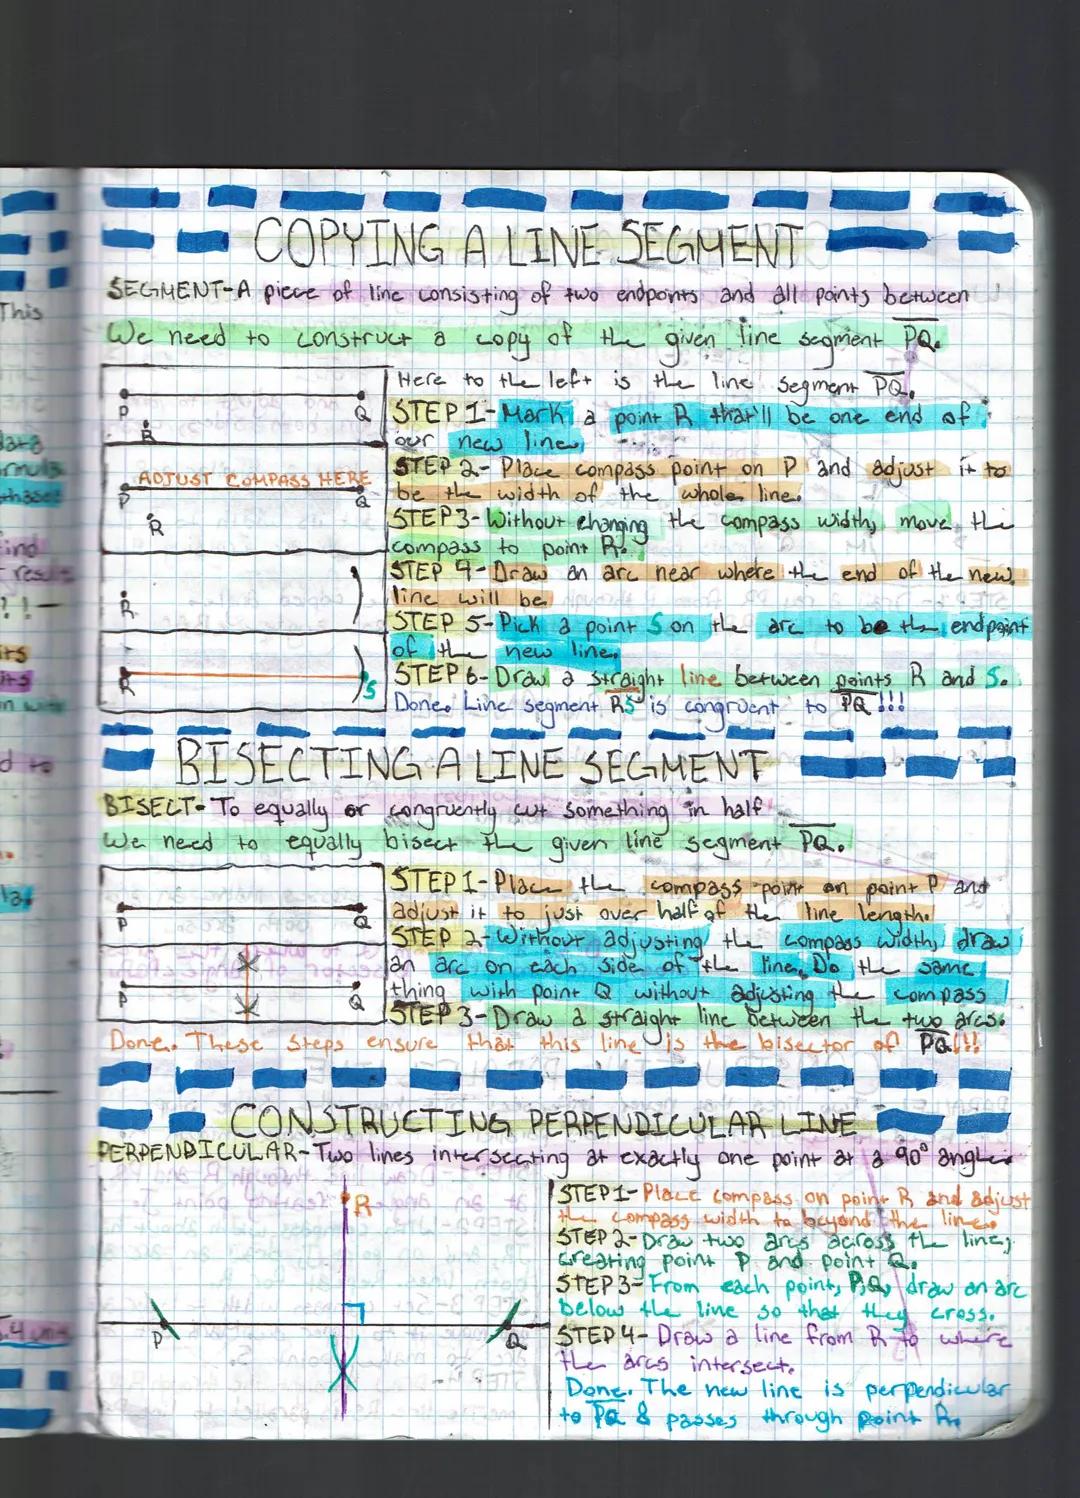 COPYING A LINE SEGMENT
SEGMENT-A piece of line consisting of two endpoints and all points between
We need to construct a copy of the given line segment PQ.
P Q
R
ADJUST COMPASS HERE
P Q
R
R
R S
Here to the left is the line segment PQ.
STEP 1-Mark a point R that'll be one end of
our new line.
STEP 2- Place compass point on P and adjust it to
be the width of the whole line.
STEP 3-Without changing the compass width, move the
compass to point R.
STEP 4-Draw an arc near where the end of the new
line will be
STEP 5-Pick a point S on the arc to be the endpoint
of the new line.
STEP 6-Draw a straight line between points R and S.
Done. Line segment RS is congruent to PQ!!!
BISECTING A LINE SEGMENT
BISECT- To equally or congruently cut something in half
We need to equally bisect the given line segment PQ.
P Q
P Q
STEP 1-Place the compass point on point P and
adjust it to just over half of the line length.
STEP 2-Without adjusting the compass width, draw
an arc on each side of the line. Do the same
thing with point Q without adjusting the compass
STEP 3-Draw a straight line between the two arcs.
Done. These steps ensure that this line is the bisector of PQ!!!
CONSTRUCTING PERPENDICULAR LINE
PERPENDICULAR-Two lines intersecting at exactly one point at a 90° angle
R
P Q
STEP 1-Place compass on point R and adjust
the compass width to beyond the line.
STEP 2-Draw two arcs across the line,
creating point P and point Q.
STEP 3-From each point, P,Q, draw an arc
below the line so that they cross.
STEP 4- Draw a line from R to where
the arcs intersect.
Done. The new line is perpendicular
to PQ & passes through point R.
This
find
result
??!—
its
d to
5.4 units